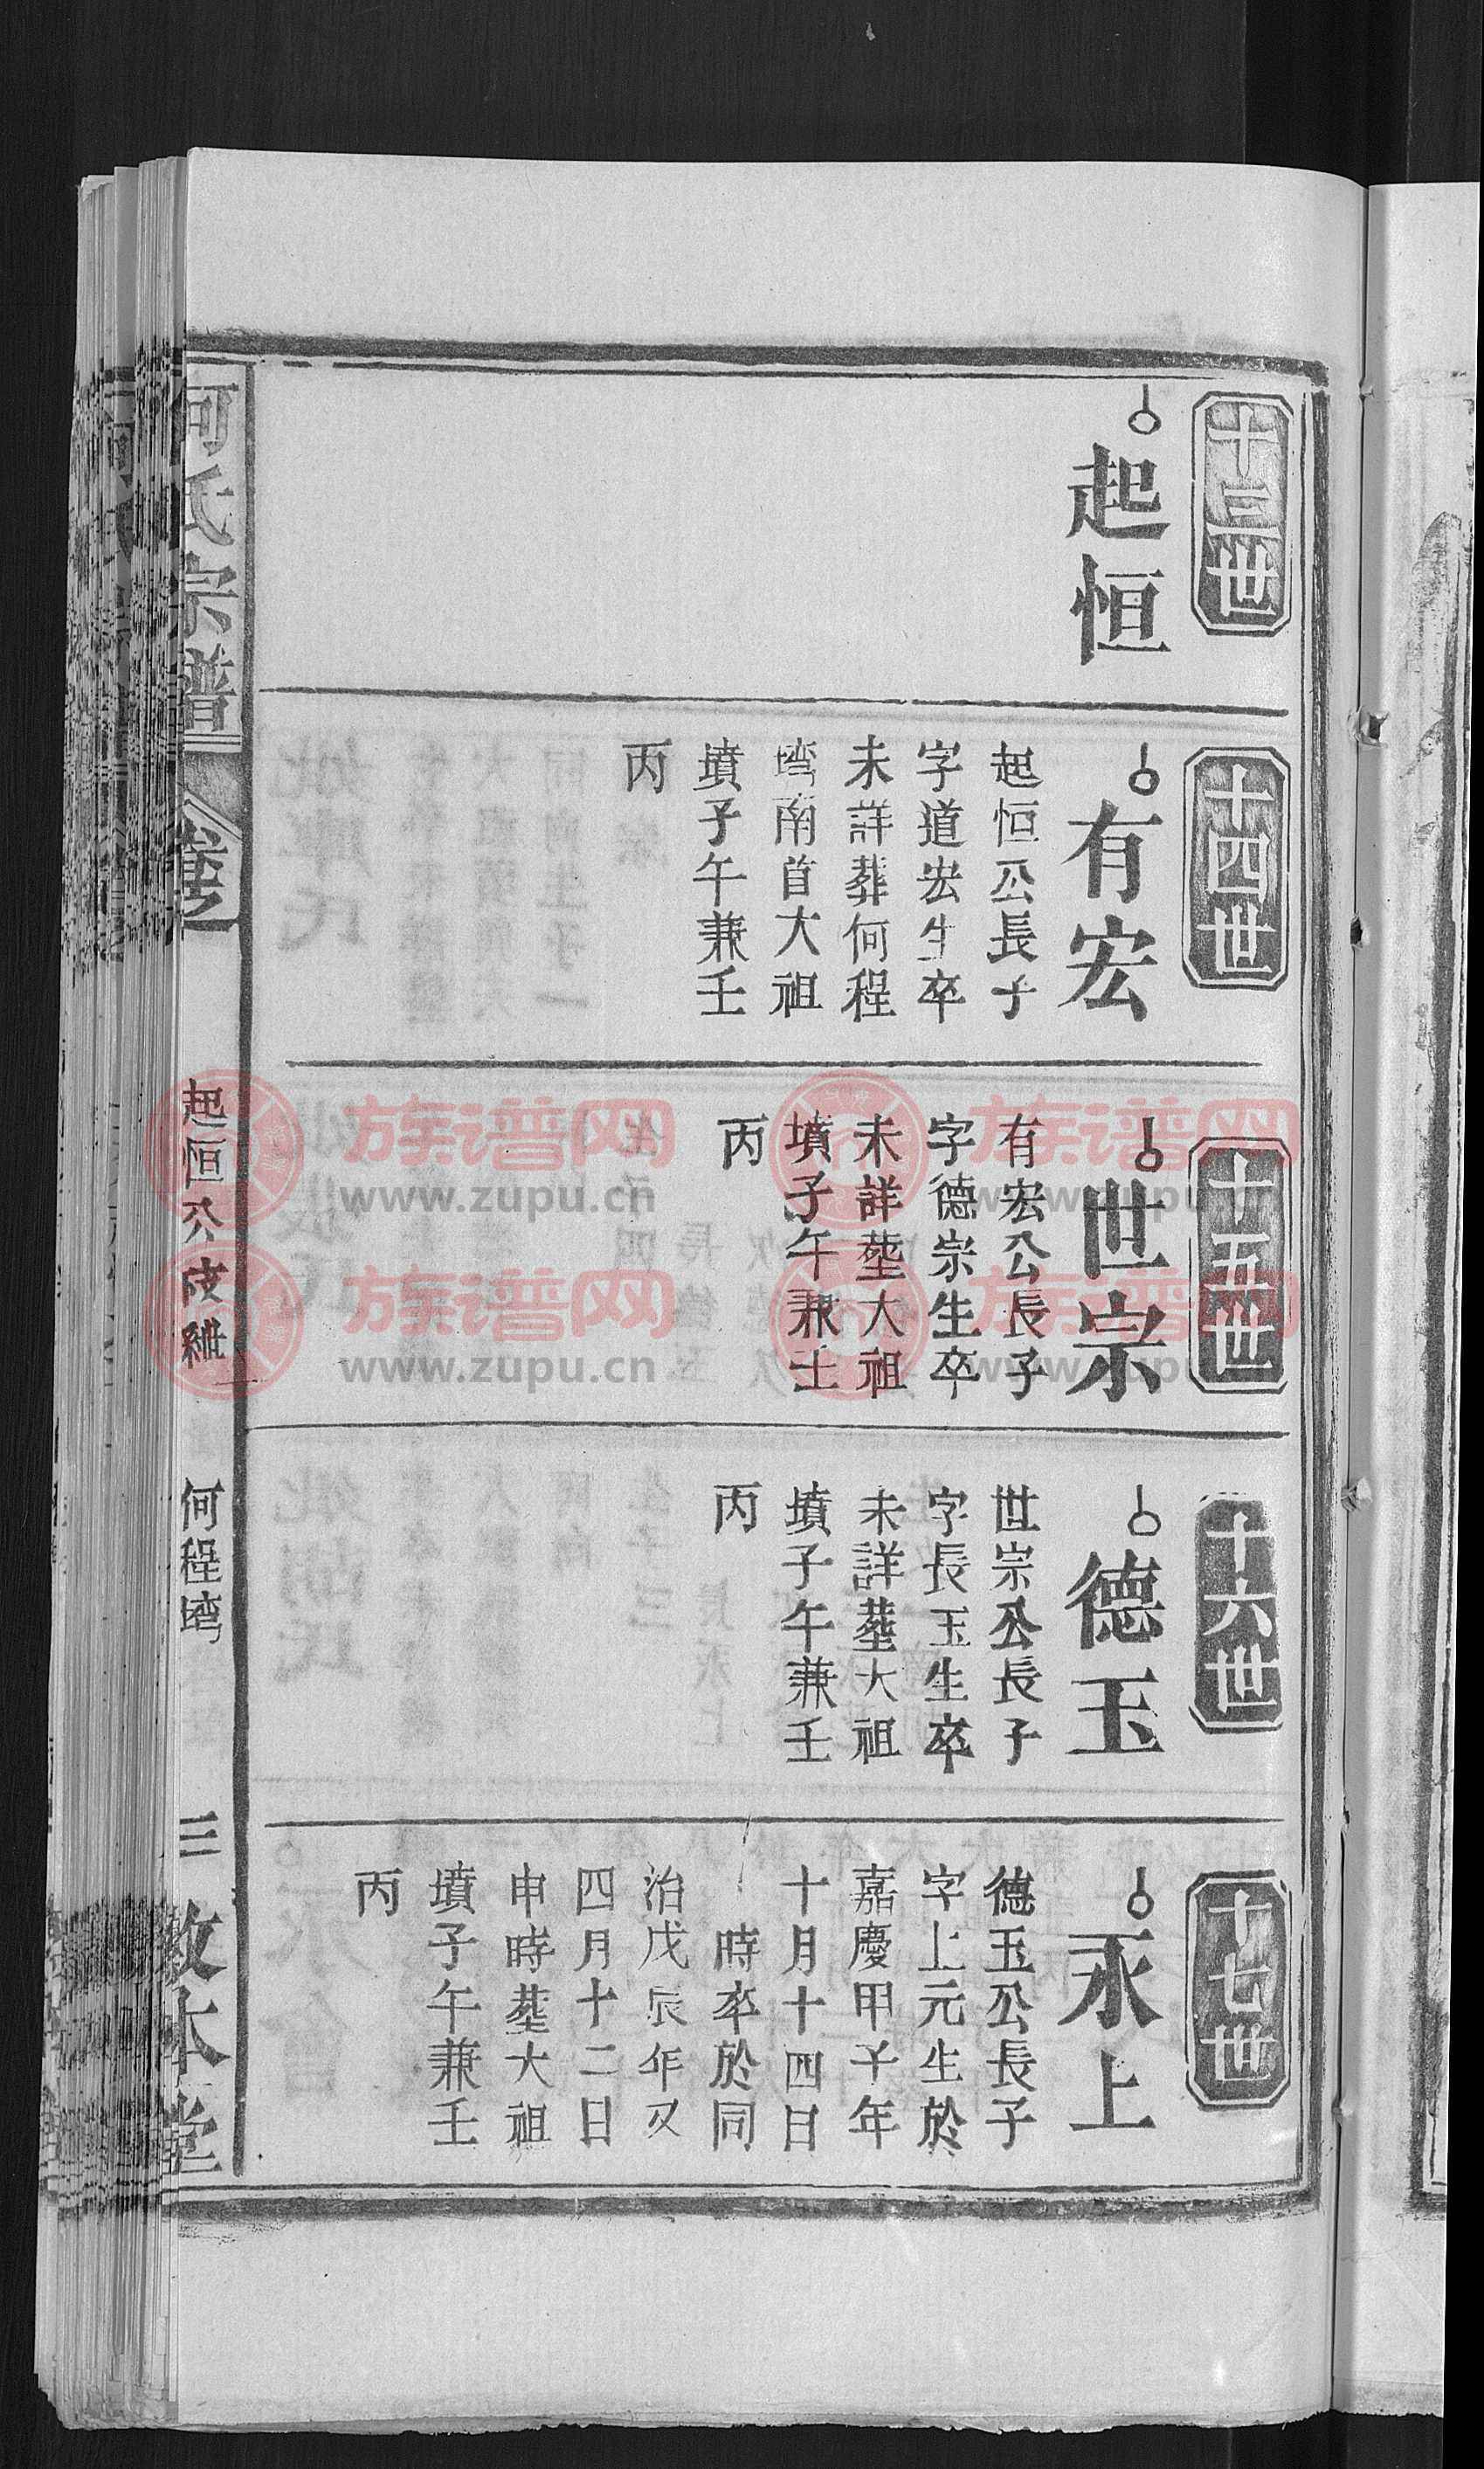 十三世
起恒
十四世
有宏
起恒公長子
字道宏生卒
未詳葬何程
塆南首大祖
墳子午兼壬
丙
十五世
世宗
有宏公長子
字德宗生卒
未詳塟大祖
墳子午兼壬
丙
十六世
德玉
世宗公長子
字長玉生卒
未詳塟大祖
墳子午兼壬
丙
十七世
永上
德玉公長子
字上元生於
嘉慶甲子年
十月十四日
時卒於同
治戊辰年又
四月十二日
申時塟大祖
墳子午兼壬
丙
何氏宗譜
起恒公
何程塆
三
敦本堂
族谱网
www.zupu.cn
族谱网
www.zupu.cn
族谱网
www.zupu.cn
族谱网
www.zupu.cn